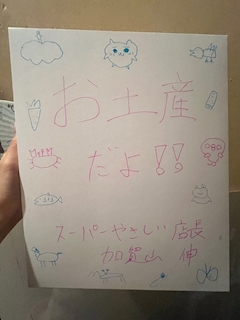 お土産
だよ!!
スーパーやさしい店長
加賀山 伸